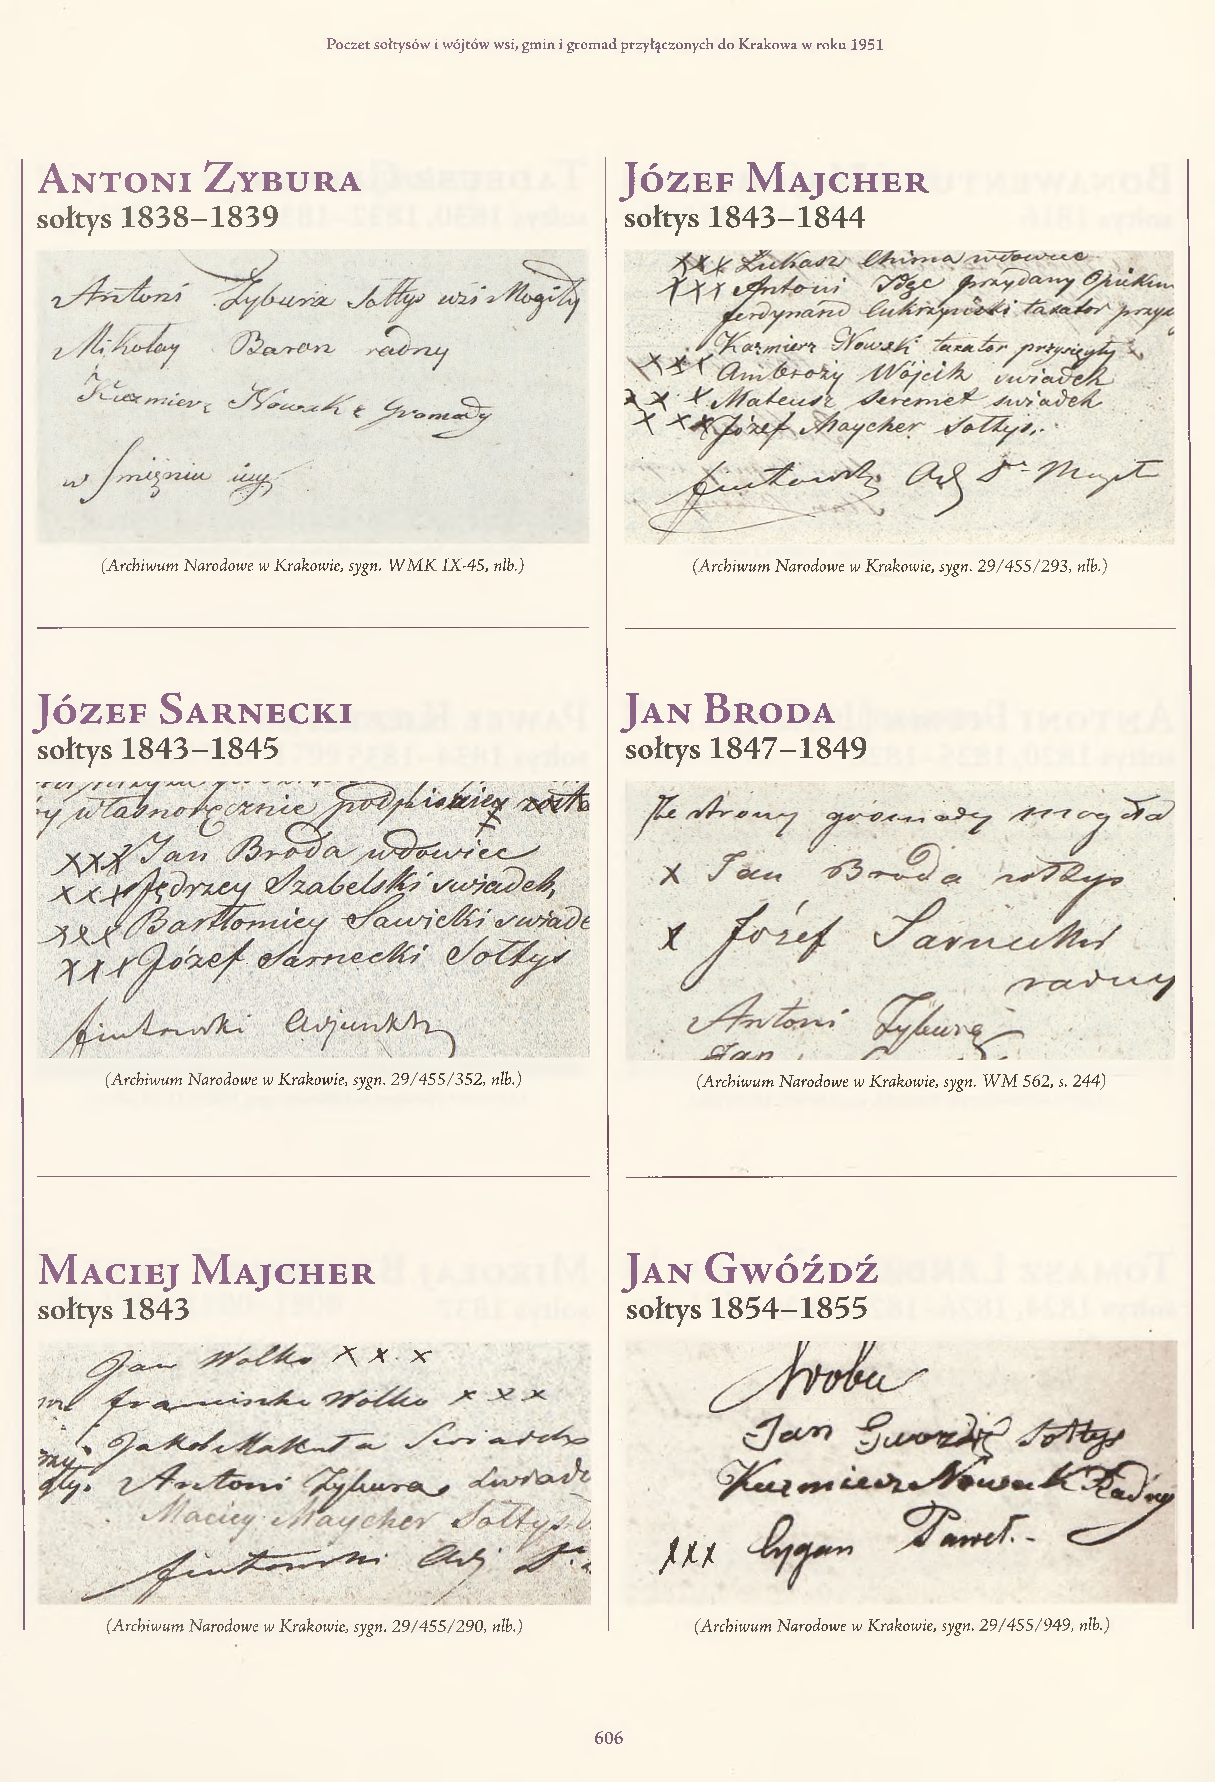 Poczet sołtysów i wójtów wsi, gmin i gromad przyłączonych do Krakowa w roku 1951
Antoni Zybura
sołtys 1838–1839
Antoni Zybura Sołtys wsi Mogiły
Mikołay Baran radny
Kaźmierz Nowak z Gromady
(Archiwum Narodowe w Krakowie, sygn. WMK IX-45, nlb.)
Józef Sarnecki
sołtys 1843–1845
własnoręcznie podpisали
xxx Jan Broda wdowiec
xxx Jędrzey Szabelski swiadek
xxx Bartłomiey Sawicki swiade
xxx Józef Sarnecki Sołtys
Adjunkt
(Archiwum Narodowe w Krakowie, sygn. 29/455/352, nlb.)
Maciej Majcher
sołtys 1843
Jan Wolko x x x
franciszka Wolko x x x
Jakob Makuła Swiadek
Antoni Zybura swiade
Maciey Maycher Sołtys
Adj
(Archiwum Narodowe w Krakowie, sygn. 29/455/290, nlb.)
Józef Majcher
sołtys 1843–1844
xxx Łukasz Chima wdowiec
xxx Antoni przydany Opiekun
ferdynand Cukrzyński taxator przys
Kaźmierz Nowski taxator przysięgły
xxx Ambroży Wójcik swiadek
x x x Mateusz Seremet swiadek
x xx Józef Maycher Sołtys.
(Archiwum Narodowe w Krakowie, sygn. 29/455/293, nlb.)
Jan Broda
sołtys 1847–1849
Ze strony gromady mogiła
x Jan Broda sołtys
x Józef Sarnecki
radny
Antoni Zybura
Jan
(Archiwum Narodowe w Krakowie, sygn. WM 562, s. 244)
Jan Gwóźdź
sołtys 1854–1855
Jan Gwoźdź Sołtys
Kazmierz Nowak Radny
xxx Cygan Paweł.-
(Archiwum Narodowe w Krakowie, sygn. 29/455/949, nlb.)
606